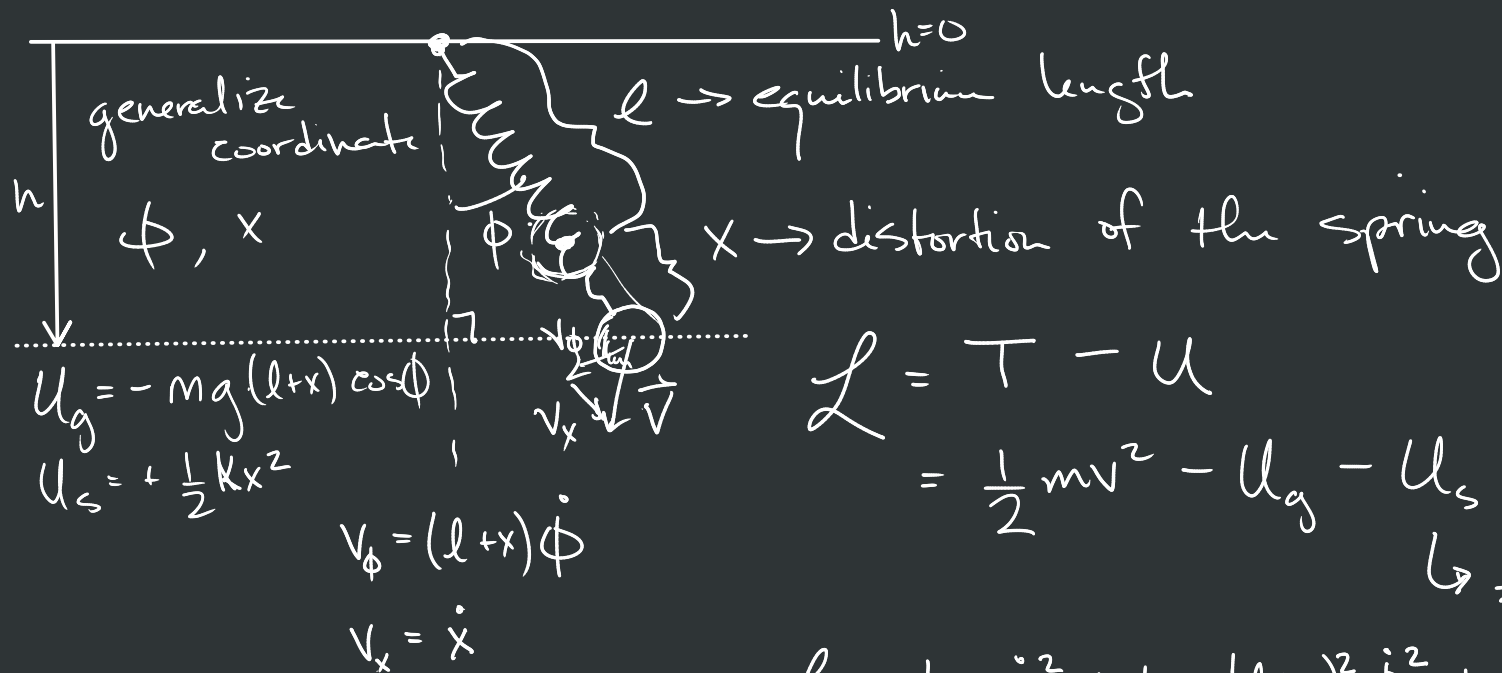 h=0
generalize
coordinate
l → equilibrium length
h
ϕ, x
ϕ
x → distortion of the spring
V_ϕ
V_x
V⃗
U_g = - mg(l+x) cosϕ
U_s = + ½ Kx²
ℒ = T - U
= ½ mv² - U_g - U_s
V_ϕ = (l+x)ϕ̇
V_x = ẋ